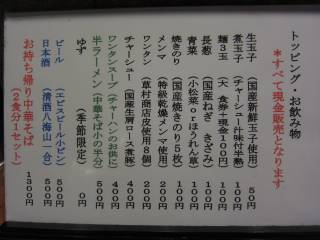 トッピング・お飲み物
＊すべて現金販売となります
生玉子 （国産新鮮玉子使用） ５０円
煮玉子 （チャーシュー汁味付半熟） １００円
麺３玉 （大 食券＋現金１００円） １００円
長葱 （国産ねぎ きざみ） １００円
青菜 （小松菜ｏｒほうれん草） １００円
焼きのり （国産焼きのり５枚） １００円
メンマ （特級乾燥メンマ使用） ２００円
ワンタン （草村商店皮使用８個） ２００円
チャーシュー （国産生肩ロース煮豚） ４００円
ワンタンスープ （チャーハンのお供に） ４００円
半ラーメン （中華そば小の半分） ５００円
ゆず （季節限定） ０円
ビール （エビスビール小ビン） ５００円
日本酒 （清酒八海山 一合） ５００円
お持ち帰り中華そば １３００円
（２食分１セット）